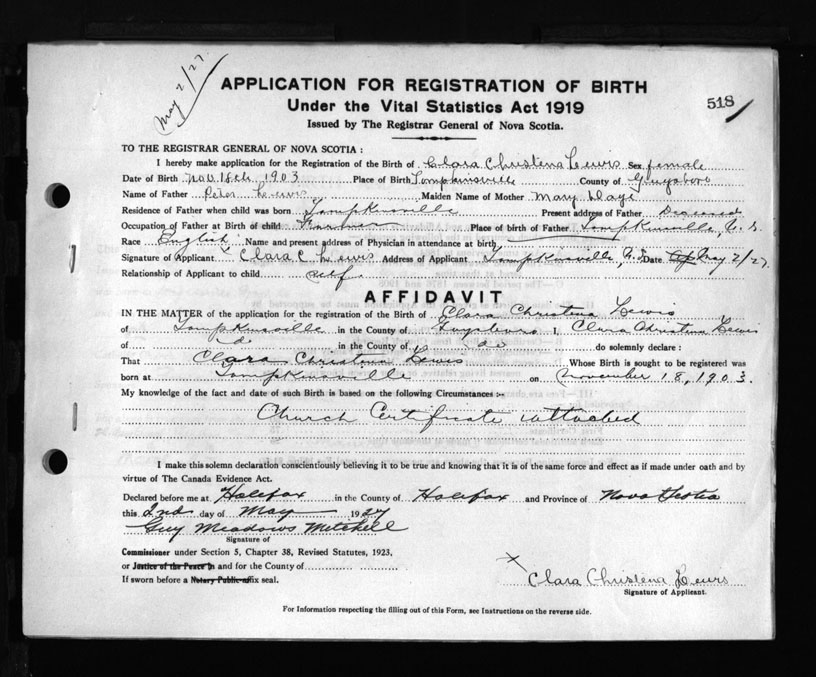 May 2/27.
APPLICATION FOR REGISTRATION OF BIRTH
518
Under the Vital Statistics Act 1919
Issued by The Registrar General of Nova Scotia.
TO THE REGISTRAR GENERAL OF NOVA SCOTIA :
I hereby make application for the Registration of the Birth of Clara Christena Lewis Sex female
Date of Birth Nov. 18th, 1903 Place of Birth Tompkinsville County of Guysboro
Name of Father Peter Lewis Maiden Name of Mother Mary
Residence of Father when child was born Tompkinsville Present address of Father Deceased
Occupation of Father at Birth of child Farmer Place of birth of Father Tompkinsville, N. S.
Race English Name and present address of Physician in attendance at birth
Signature of Applicant Clara C Lewis Address of Applicant Tompkinsville, N. S. Date May 2/27.
Relationship of Applicant to child self
AFFIDAVIT
IN THE MATTER of the application for the registration of the Birth of Clara Christina Lewis
of Tompkinsville in the County of Guysboro I, Clara Christina Lewis
of do in the County of do do solemnly declare :
That Clara Christina Lewis Whose Birth is sought to be registered was
born at Tompkinsville on November 18, 1903.
My knowledge of the fact and date of such Birth is based on the following Circumstances :-
Church Certificate attached
I make this solemn declaration conscientiously believing it to be true and knowing that it is of the same force and effect as if made under oath and by
virtue of The Canada Evidence Act.
Declared before me at Halifax in the County of Halifax and Province of Nova Scotia
this 2nd day of May 1927
Guy Meadows Mitchell
Signature of
Commissioner under Section 5, Chapter 38, Revised Statutes, 1923,
or Justice of the Peace in and for the County of
If sworn before a Notary Public affix seal.
X Clara Christena Lewis
Signature of Applicant.
For Information respecting the filling out of this Form, see Instructions on the reverse side.